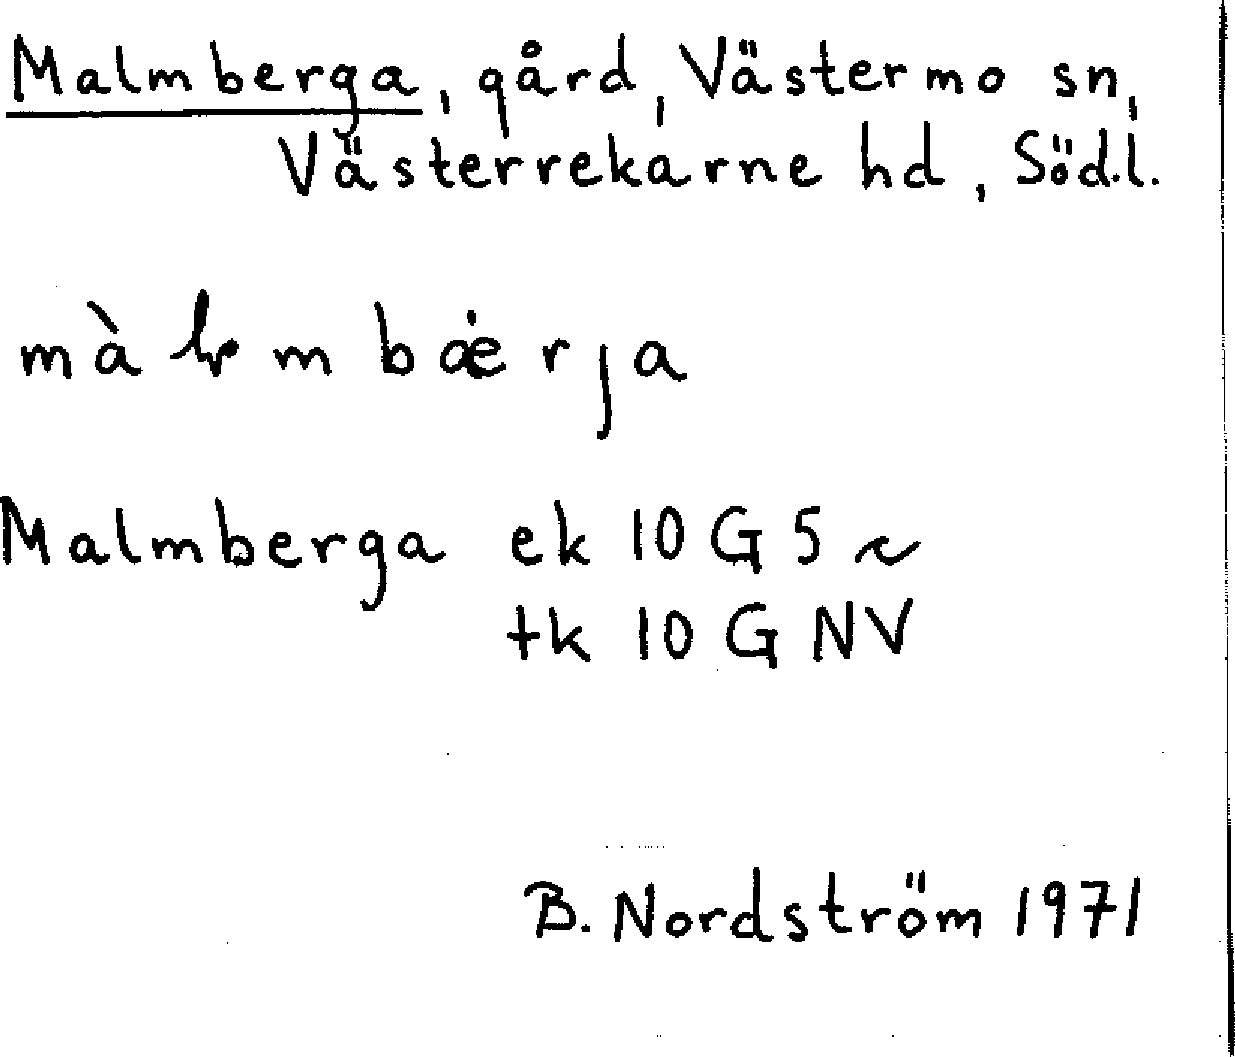 Malmberga, gård, Västermo sn,
Västerrekarne hd, Söd.l.
màlmbæ̇rja
Malmberga ek 10 G 5
tk 10 G NV
B. Nordström 1971